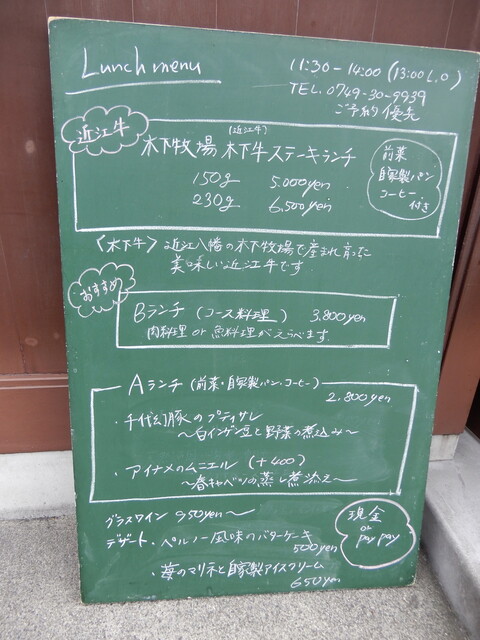 Lunch menu
11:30-14:00 (13:00 L.O)
TEL. 0749-30-9939
ご予約優先
近江牛
(近江牛)
木下牧場 木下牛ステーキランチ
150g 5,000yen
230g 6,500yen
前菜
自家製パン
コーヒー
付き
〈木下牛〉 近江八幡の木下牧場で産まれ育った
美味しい近江牛です
おすすめ
Bランチ (コース料理) 3,800yen
肉料理 or 魚料理がえらべます.
Aランチ (前菜・自家製パン・コーヒー)
2,800yen
・千代幻豚のプティサレ
~白インゲン豆と野菜の煮込み~
・アイナメのムニエル (+400)
~春キャベツの蒸し煮添え~
グラスワイン 950yen~
デザート・ペルノー風味のバターケーキ
500yen
・苺のマリネと自家製アイスクリーム
650yen
現金
or
pay pay